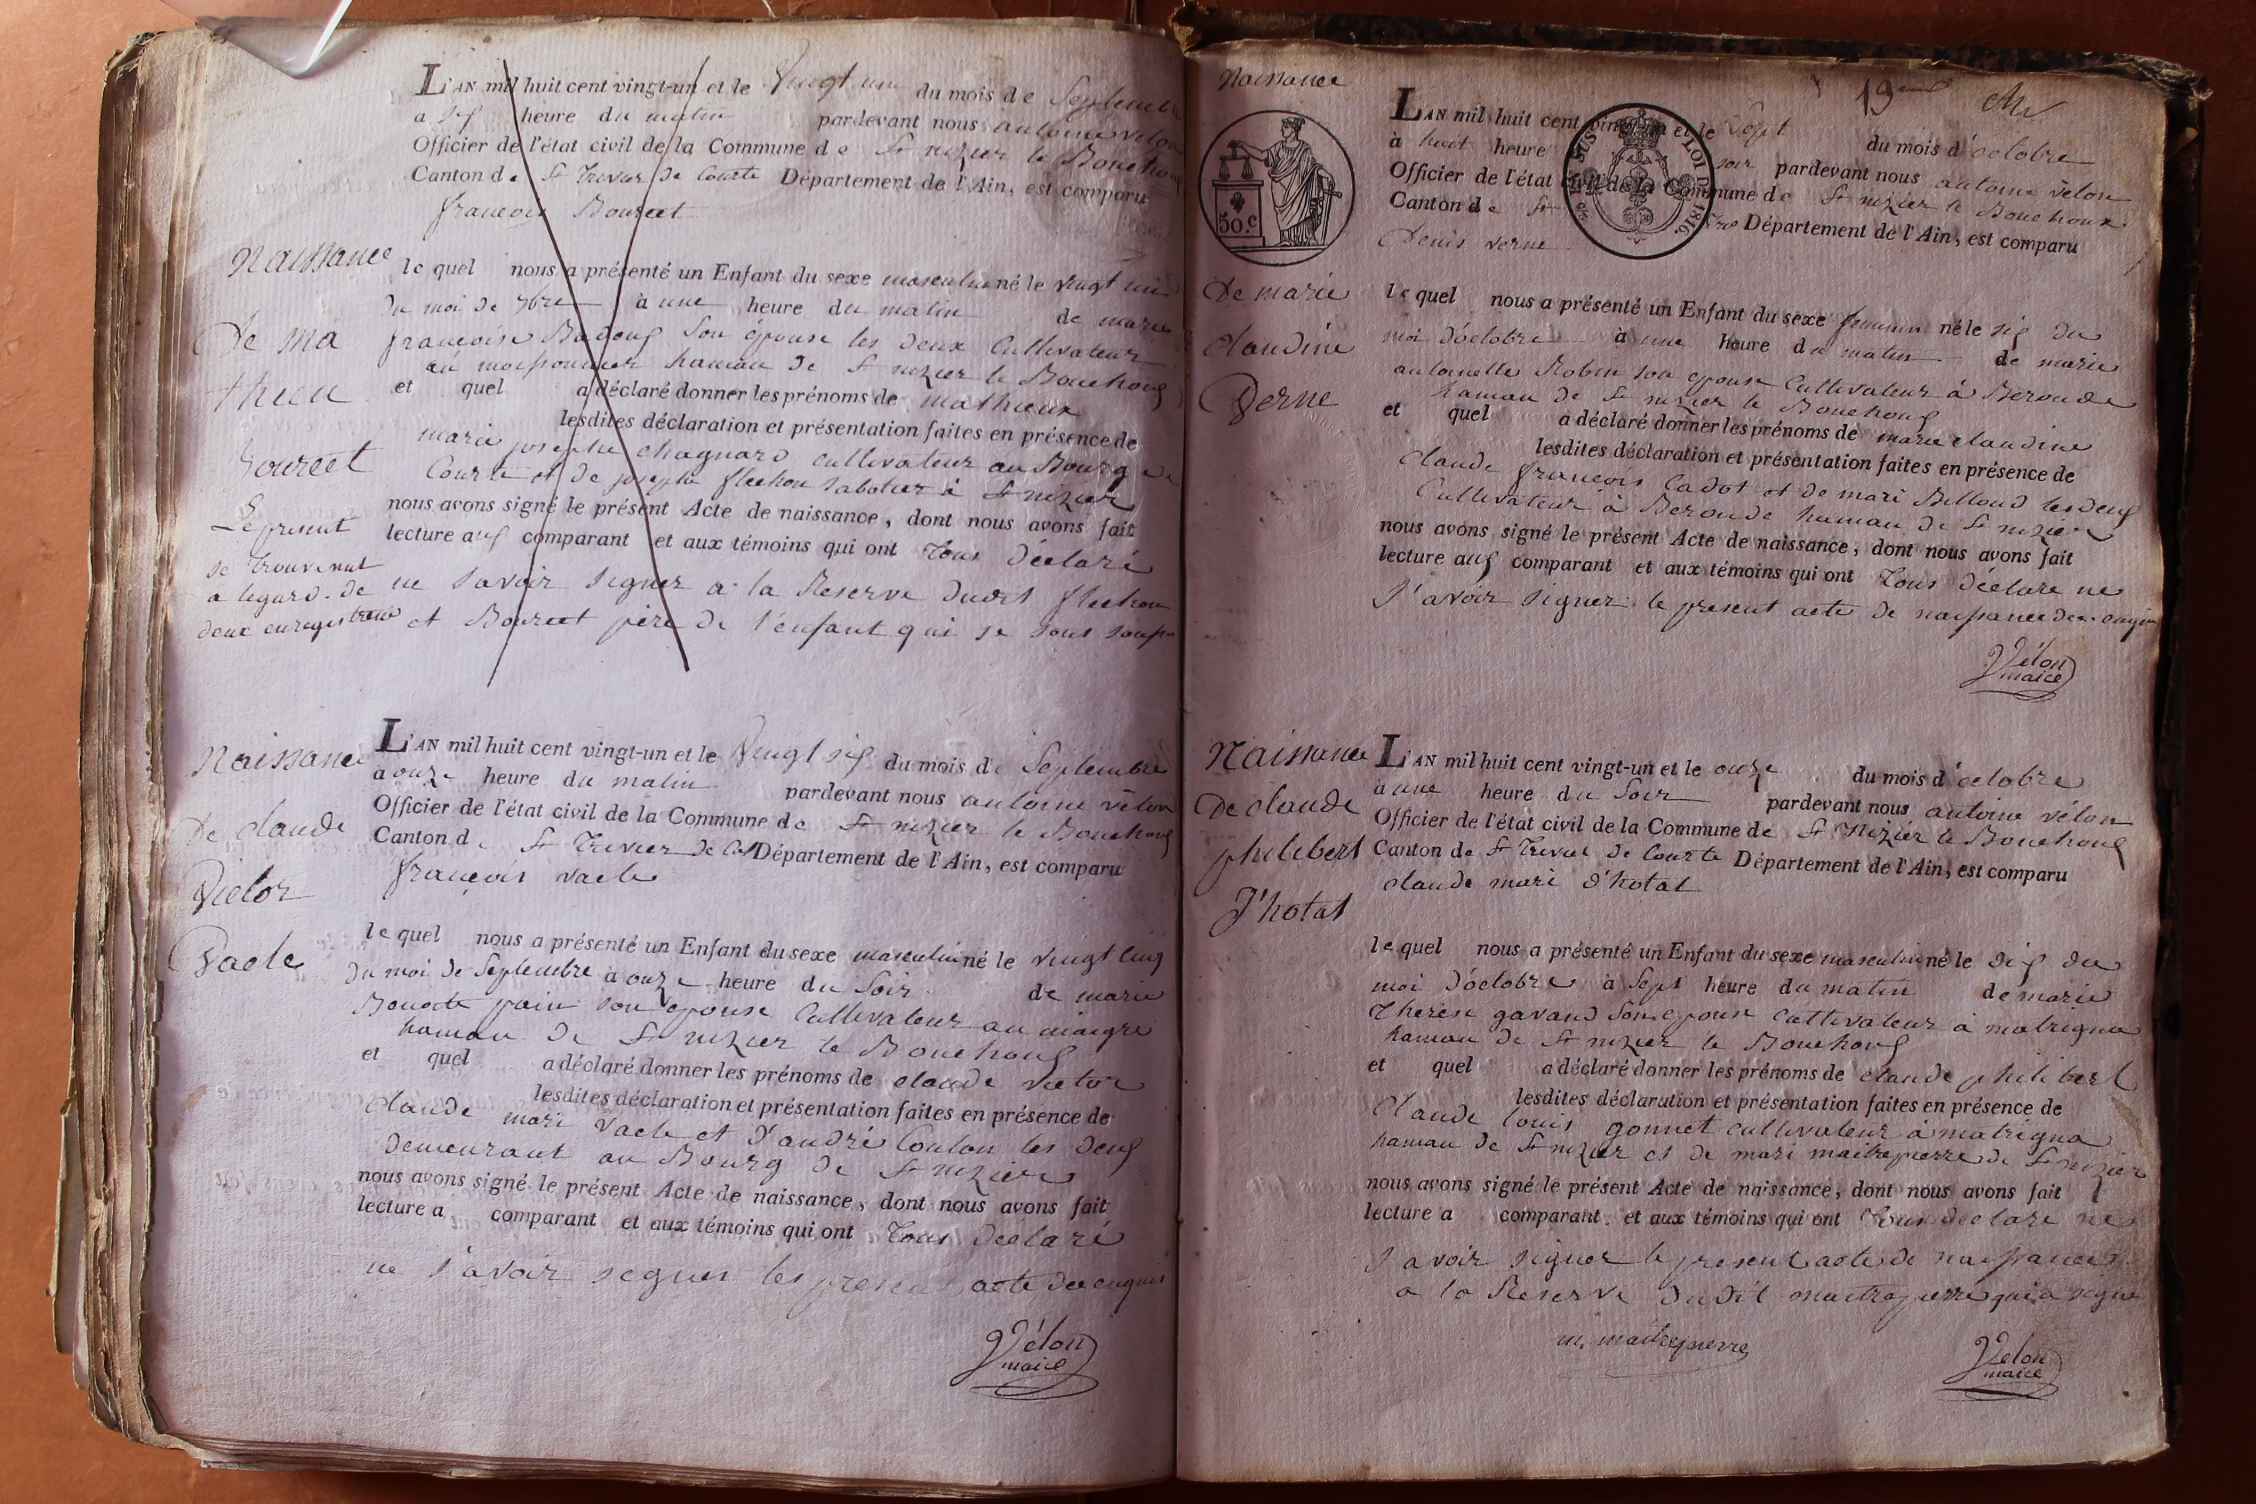 L'AN mil huit cent vingt-un et le Vingt un du mois de Septembre
a six heure du matin pardevant nous antoine vélon
Officier de l'état civil de la Commune de St nizier le Bouchoux
Canton de St Trivier de Courte Département de l'Ain, est comparu
françois Bourcet
Naissance
De ma
thieu
Bourcet
Le present
se trouvent
a legard de
deux enregistrerai
le quel nous a présenté un Enfant du sexe masculin né le vingt un
du moi de 7bre à une heure du matin de marie
françoise Badoux son épouse les deux Cultivateur
au moissonnier hamau de St nizier le Bouchoux
et quel a déclaré donner les prénoms de mathieux
lesdites déclaration et présentation faites en présence de
marie josephe chagnard cultivateur au Bourg de
Courte et de joseph flechon sabotier à St nizier
nous avons signé le présent Acte de naissance, dont nous avons fait
lecture aux comparant et aux témoins qui ont Tous Déclaré
ne savoir signer a la Reserve dudit flechon
et Bourcet père de l'enfant qui se sont
Naissance
De claude
Victor
Vacle
L'AN mil huit cent vingt-un et le Vingt six du mois de Septembre
a onze heure du matin pardevant nous antoine vélon
Officier de l'état civil de la Commune de St nizier le Bouchoux
Canton de St Trivier de Cot Département de l'Ain, est comparu
françois vacle
le quel nous a présenté un Enfant du sexe masculin né le vingt cinq
du moi de Septembre à onze heure du Soir de marie
Benoite pain son epouse Cultivateur au maigre
hamau de St nizier le Bouchoux
et quel a déclaré donner les prénoms de claude victor
lesdites déclaration et présentation faites en présence de
Claude mari Vacle et D'andré Coulon les deux
demeurant au Bourg de St nizier
nous avons signé le présent Acte de naissance, dont nous avons fait
lecture a comparant et aux témoins qui ont Tous Déclaré
ne s'avoir signer les present acte de ce enquis
Vélon
maire
Naissance
50.c
De marie
claudine
Verne
19eme
L'AN mil huit cent vingt-un et le Sept du mois d'octobre
à huit heure soir pardevant nous antoine vélon
Officier de l'état civil de la Commune de St nizier le Bouchoux
Canton de St Département de l'Ain, est comparu
Denis verne
SUS LOI DE 1816.
le quel nous a présenté un Enfant du sexe feminin né le six du
moi d'octobre à une heure du matin de marie
antoinette Robin son epouse Cultivateur à Beronde
hamau de St nizier le Bouchoux
et quel a déclaré donner les prénoms de marie claudine
lesdites déclaration et présentation faites en présence de
Claude françois Cadot et de mari Billoud les deux
Cultivateur à Beronde hamau de St nizier
nous avons signé le présent Acte de naissance, dont nous avons fait
lecture aux comparant et aux témoins qui ont Tous Déclare ne
s'avoir signer le present acte de naissance de ce
Vélon
maire
Naissance
De claude
philibert
D'hotal
L'AN mil huit cent vingt-un et le onze du mois d'octobre
à une heure du Soir pardevant nous antoine vélon
Officier de l'état civil de la Commune de St Nizier le Bouchoux
Canton de St Trivier de Courte Département de l'Ain, est comparu
claude mari d'hotal
le quel nous a présenté un Enfant du sexe masculin né le dix du
moi d'octobre à Sept heure du matin de marie
Therese gavand Son epouse cultivateur à matrigna
hamau de St nizier le Bouchoux
et quel a déclaré donner les prénoms de claude philibert
lesdites déclaration et présentation faites en présence de
Claude louis gonnet cultivateur à matrigna
hamau de St nizier et de mari maitrepierre de St nizier
nous avons signé le présent Acte de naissance, dont nous avons fait
lecture a comparant et aux témoins qui ont Tous declare ne
s avoir signer le present acte de naissance
a la Reserve dudit maitrepierre qui a signe
m. maitrepierre
Vélon
maire